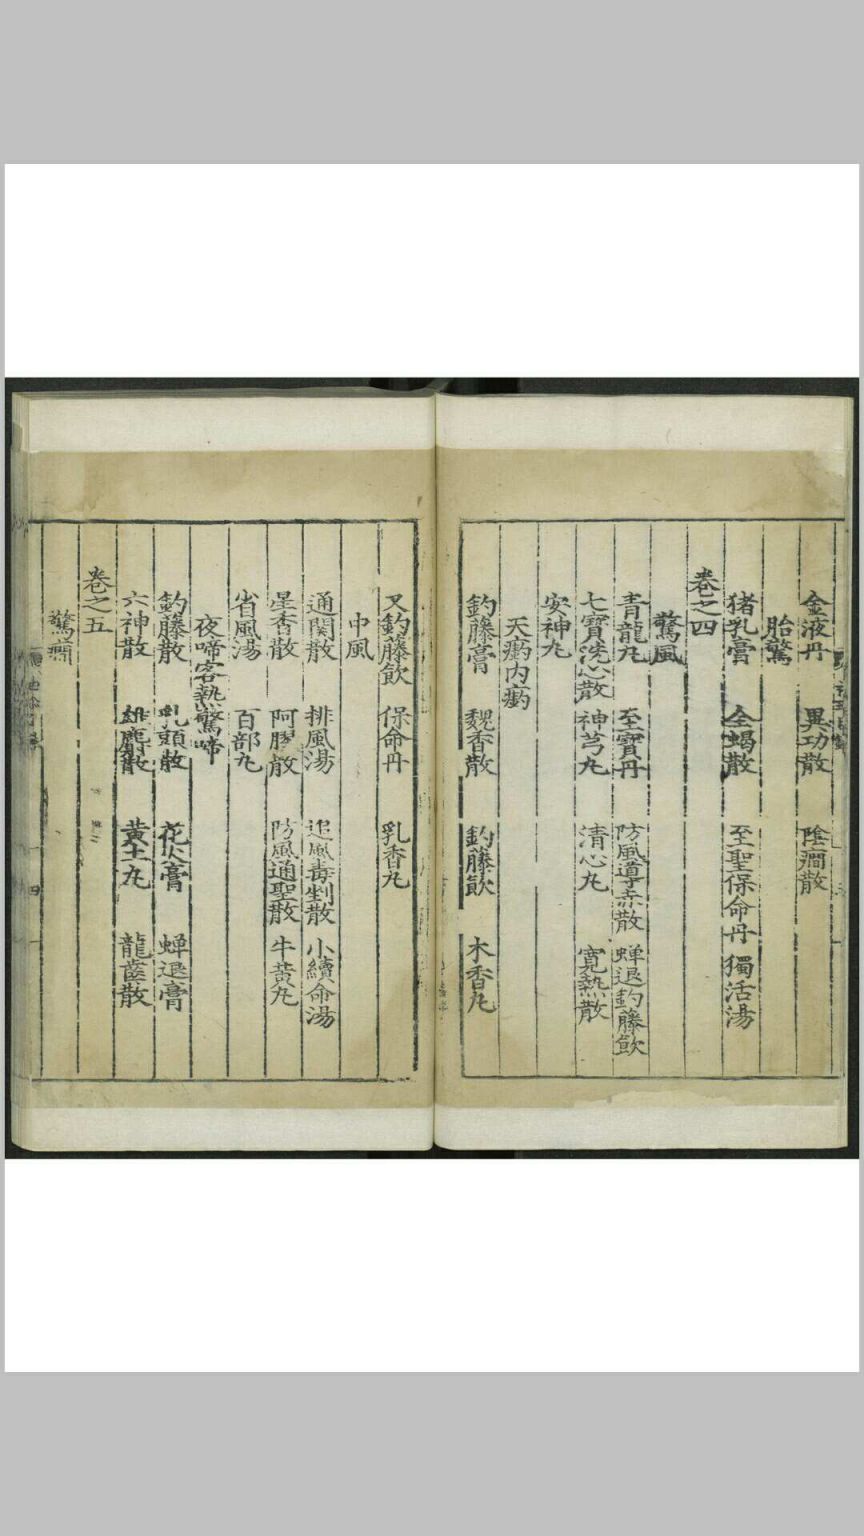 金液丹　異功散　陰癎散
胎驚
猪乳膏　全蝎散　至聖保命丹　獨活湯
卷之四
驚風
青龍丸　至寶丹　防風導赤散　蟬退釣藤飲
七寶洗心散　神芎丸　清心丸　寬熱散
安神丸
天瘹内瘹
釣藤膏　魏香散　釣藤飲　木香丸
又釣藤飲　保命丹　乳香丸
中風
通関散　排風湯　追風毒剉散　小續命湯
星香散　阿膠散　防風通聖散　牛黄丸
省風湯　百部丸
夜啼客熱驚啼
釣藤散　乳頭散　花火膏　蟬退膏
六神散　雄麝散　黄土丸　龍齒散
卷之五
驚癎